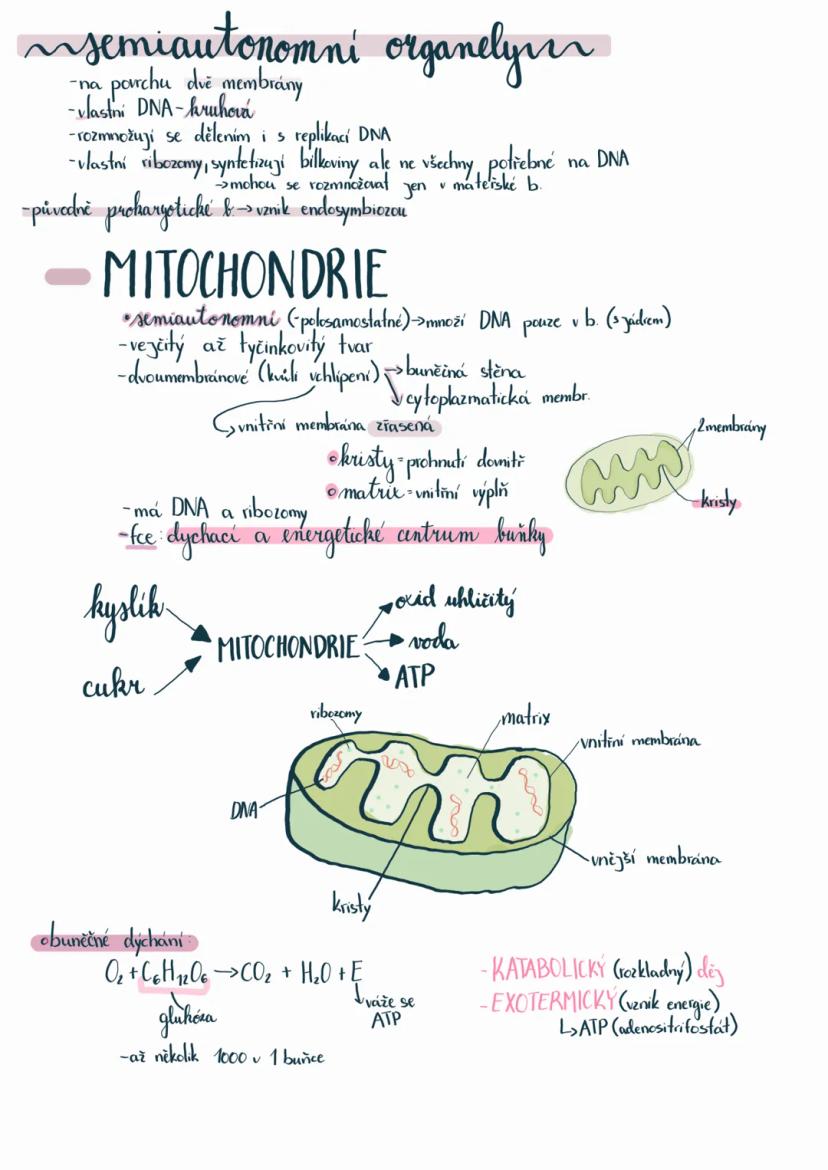 semiautonomní organely
-na povrchu dvě membrány
-vlastní DNA-kruhová
-rozmnožují se dělením i s replikací DNA
-vlastní ribozomy, syntetizují bílkoviny ale ne všechny potřebné na DNA
→mohou se rozmnožovat jen v mateřské b.
-původně prokaryotické b.→vznik endosymbiozou
MITOCHONDRIE
•semiautonomní (-polosamostatné)→množí DNA pouze v b. (s jádrem)
-vejčitý až tyčinkovitý tvar
-dvoumembránové (kvůli vchlípení)→buněčná stěna
↘cytoplazmatická membr.
↪vnitřní membrána zřasená
2membrány
•kristy=prohnutí dovnitř
•matrix=vnitřní výplň
kristy
-má DNA a ribozomy
-fce: dýchací a energetické centrum buňky
kyslík
oxid uhličitý
MITOCHONDRIE
voda
cukr
ATP
ribozomy
matrix
vnitřní membrána
DNA
vnější membrána
kristy
obuněčné dýchání:
O₂+C₆H₁₂O₆→CO₂ + H₂O + E
-KATABOLICKÝ (rozkladný) děj
glukóza
váže se
ATP
-EXOTERMICKÝ (vznik energie)
↳ATP (adenositrifosfát)
-až několik 1000 v 1 buňce